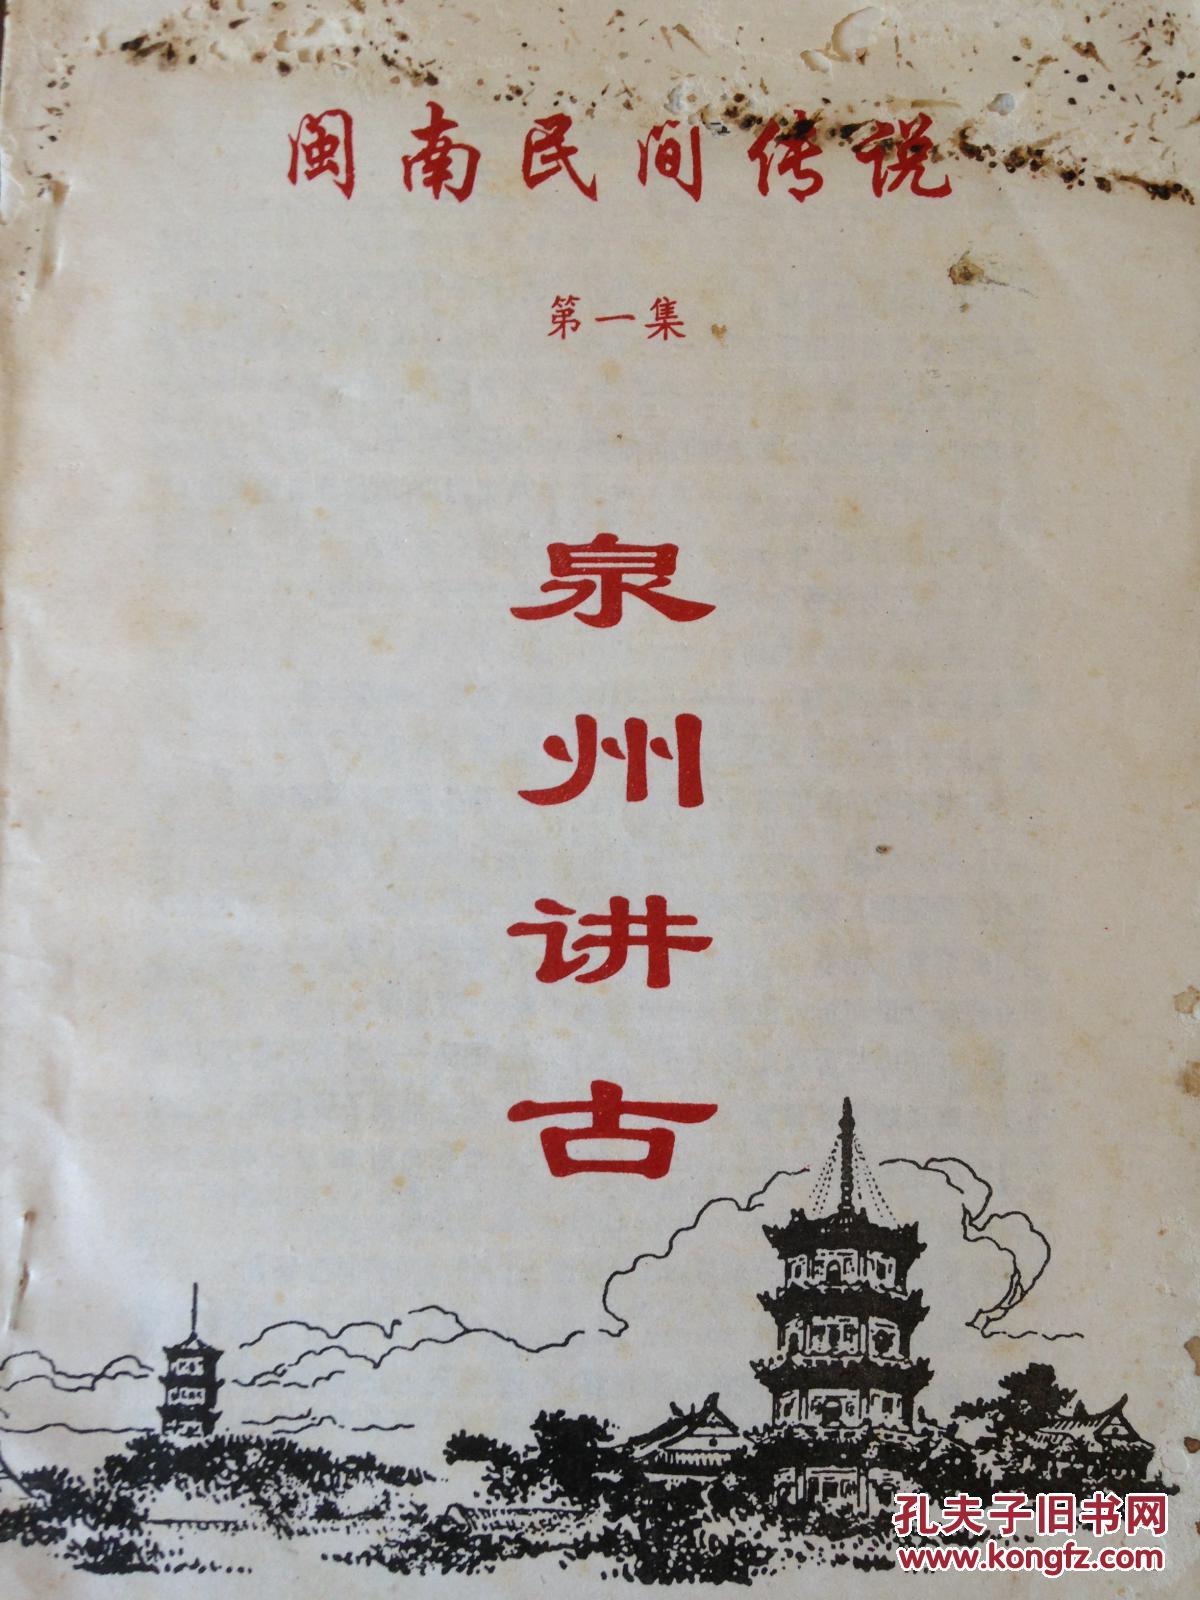 闽南民间传说
第一集
泉州讲古
孔夫子旧书网
www.kongfz.com